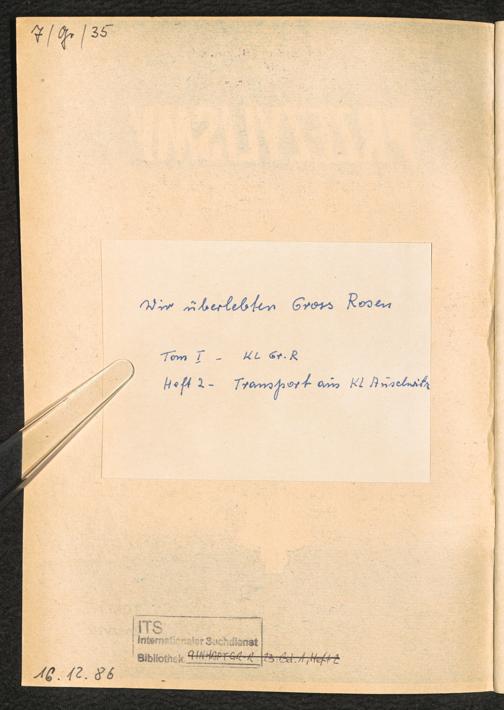 7/Gr/35
Wir überlebten Gross Rosen
Tom I - KL Gr.R
Heft 2 - Transport aus KL Auschwitz
ITS
Internationaler Suchdienst
Bibliothek
16.12.86